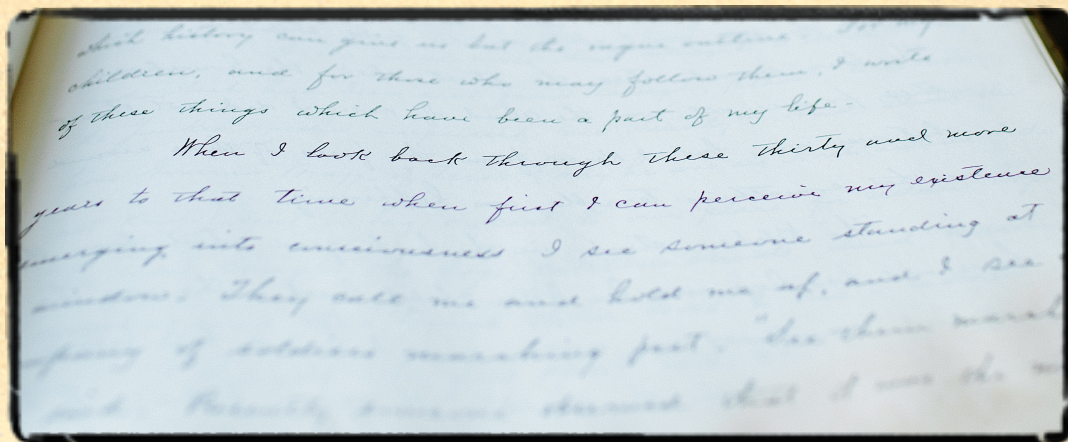 which history can give us but the vague outline. For my
children, and for those who may follow them, I write
of these things which have been a part of my life.
When I look back through these thirty and more
years to that time when first I can perceive my existence
emerging into consciousness I see someone standing at
window. They call me and hold me up, and I see
of soldiers marching past. "See them march